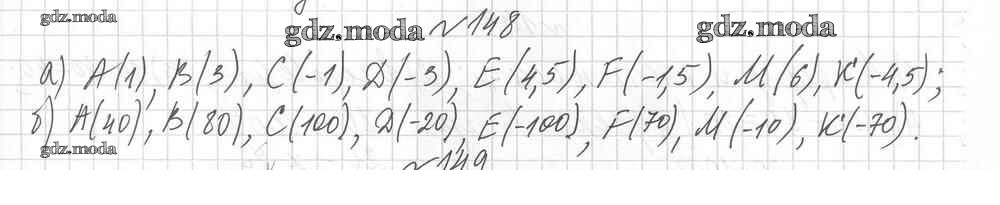 gdz.moda
gdz.moda №148 gdz.moda
а) A(1), B(3), C(-1), D(-3), E(4,5), F(-1,5), M(6), K(-4,5);
б) A(40), B(80), C(100), D(-20), E(-100), F(70), M(-10), K(-70).
gdz.moda
№149